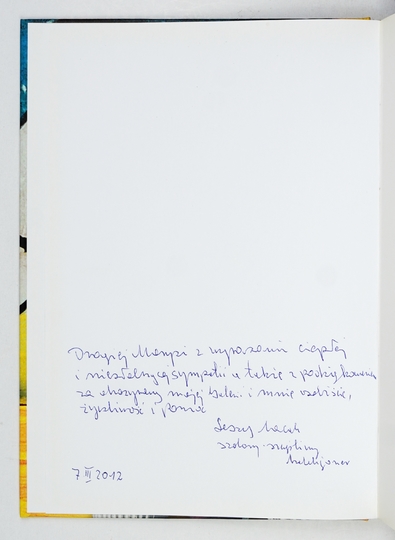 Drogiej Marysi z wyrazami ciepłej
i niesłabnącej sympatii a także z podziękowaniem
za okazywaną mojej i mnie osobiście,
życzliwość i pomoc
Leszy Macak
szalony
kolekcjoner
7 III 2012